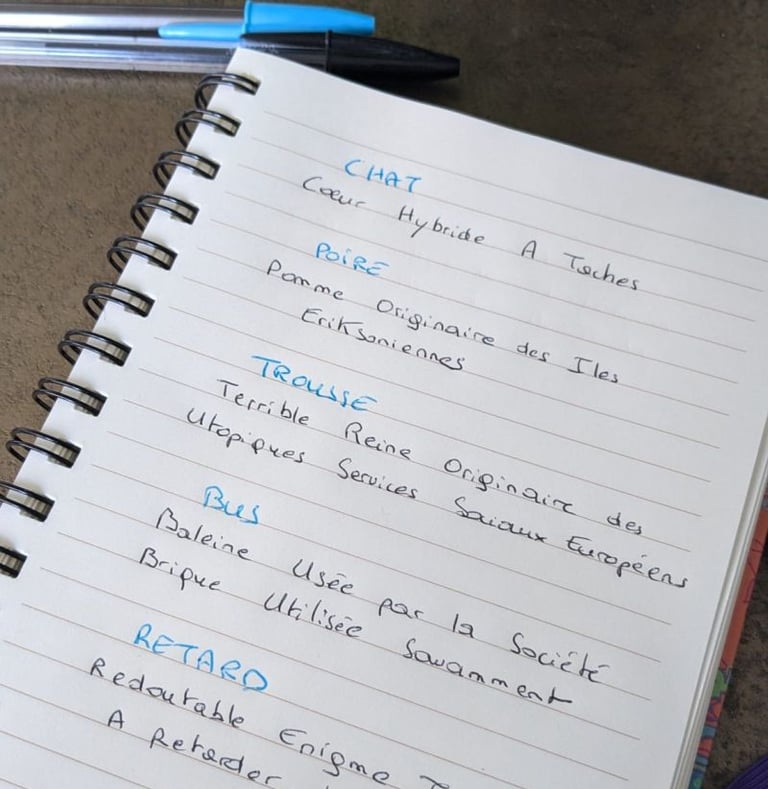 CHAT
Cœur Hybride A Taches
POIRE
Pomme Originaire des Iles
Eriksoniennes
TROUSSE
Terrible Reine Originaire des
Utopiques Services Sociaux Européens
BUS
Baleine Usée par la Société
Brique Utilisée Savamment
RETARD
Redoutable Enigme
A Retarder